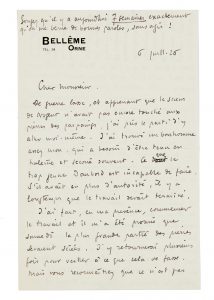 Songez qu'il y a aujourd'hui 7 semaines exactement
qu'il me berne de bonnes paroles, sans agir !
BELLÊME
TEL. 34 ORNE
6 juill. 26
Cher monsieur.
De guerre lasse, et apprenant que le scieur
de Nogent n'avait pas encore touché aux
, j'ai pris le parti d'y
aller moi-même. J'ai trouvé un bonhomme
assez mou, qui a besoin d'être tenu en
haleine et secoué souvent. Ce
trop jeune Daubord est incapable de faire
S'il avait eu plus d'autorité, il y a
longtemps que le travail serait terminé.
J'ai fait, en ma présence, commencer
le travail et il m'a été promis que
samedi la plus grande partie des pierres
seraient sciées. J'y retournerai plusieurs
fois pour veiller à ce que cela se fasse.
Mais vous reconnaîtrez que ce n'est pas